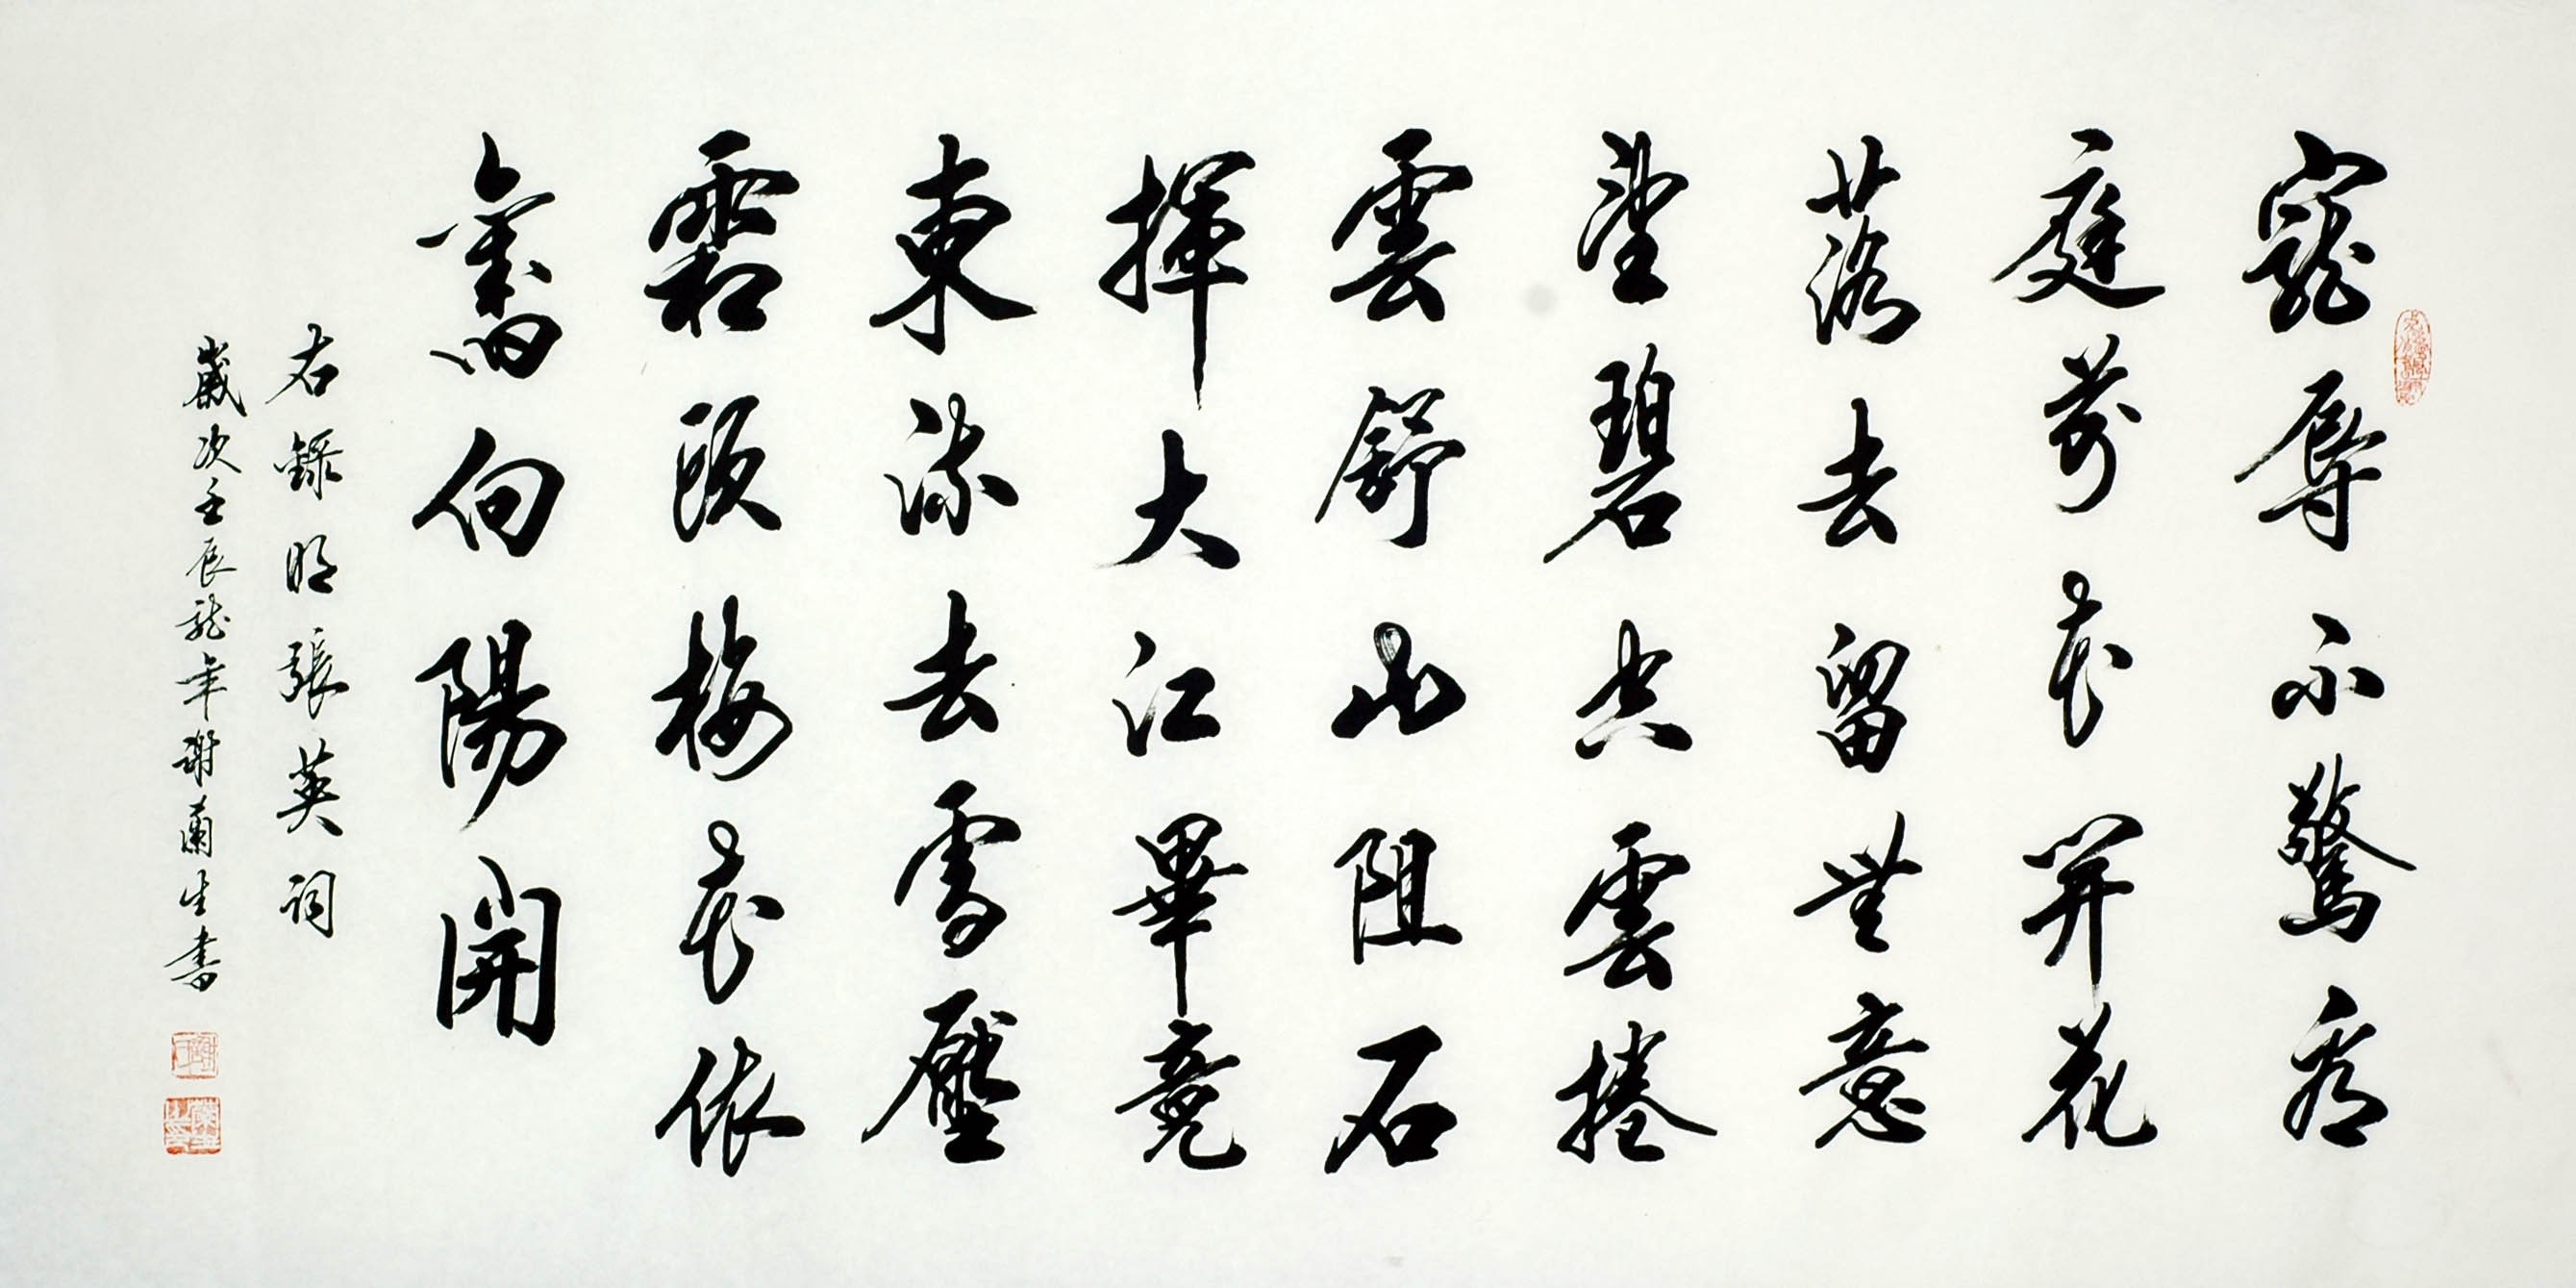 寵辱不驚看
庭前花開花
落去留無意
望碧空雲捲
雲舒山阻石
揮大江畢竟
東流去雪壓
霜頭梅花依
舊向陽開
右錄明張英詞
歲次壬辰龍年謝蘭生書